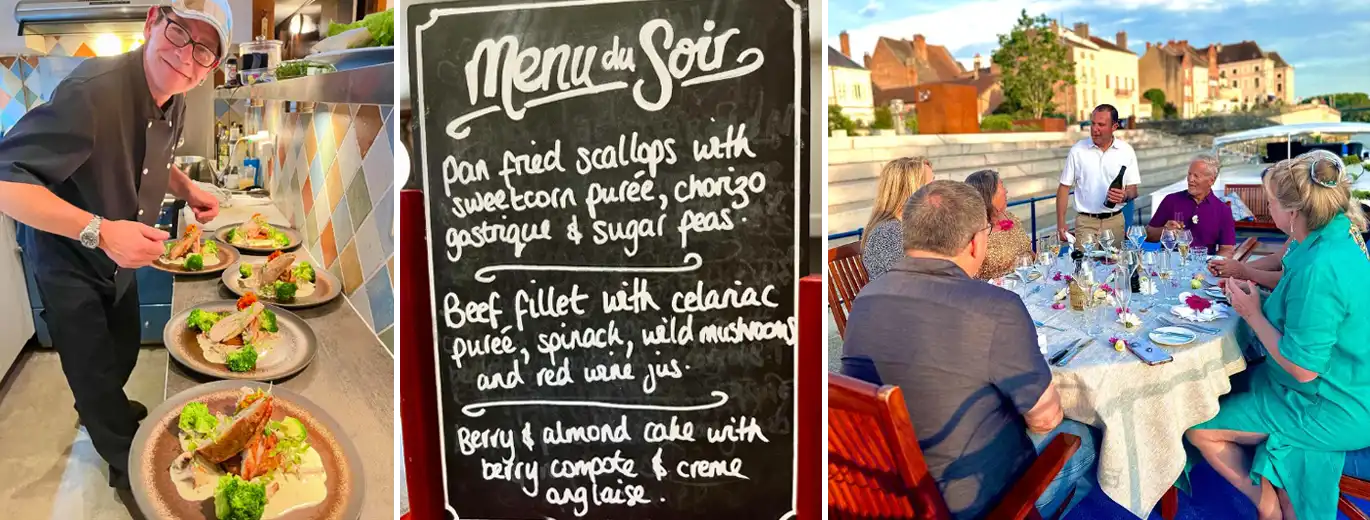 Menu du Soir
Pan fried scallops with
sweetcorn purée, chorizo
gastrique & sugar peas.
Beef fillet with celariac
purée, spinach, wild mushrooms
and red wine jus.
Berry & almond cake with
berry compote & creme
anglaise.